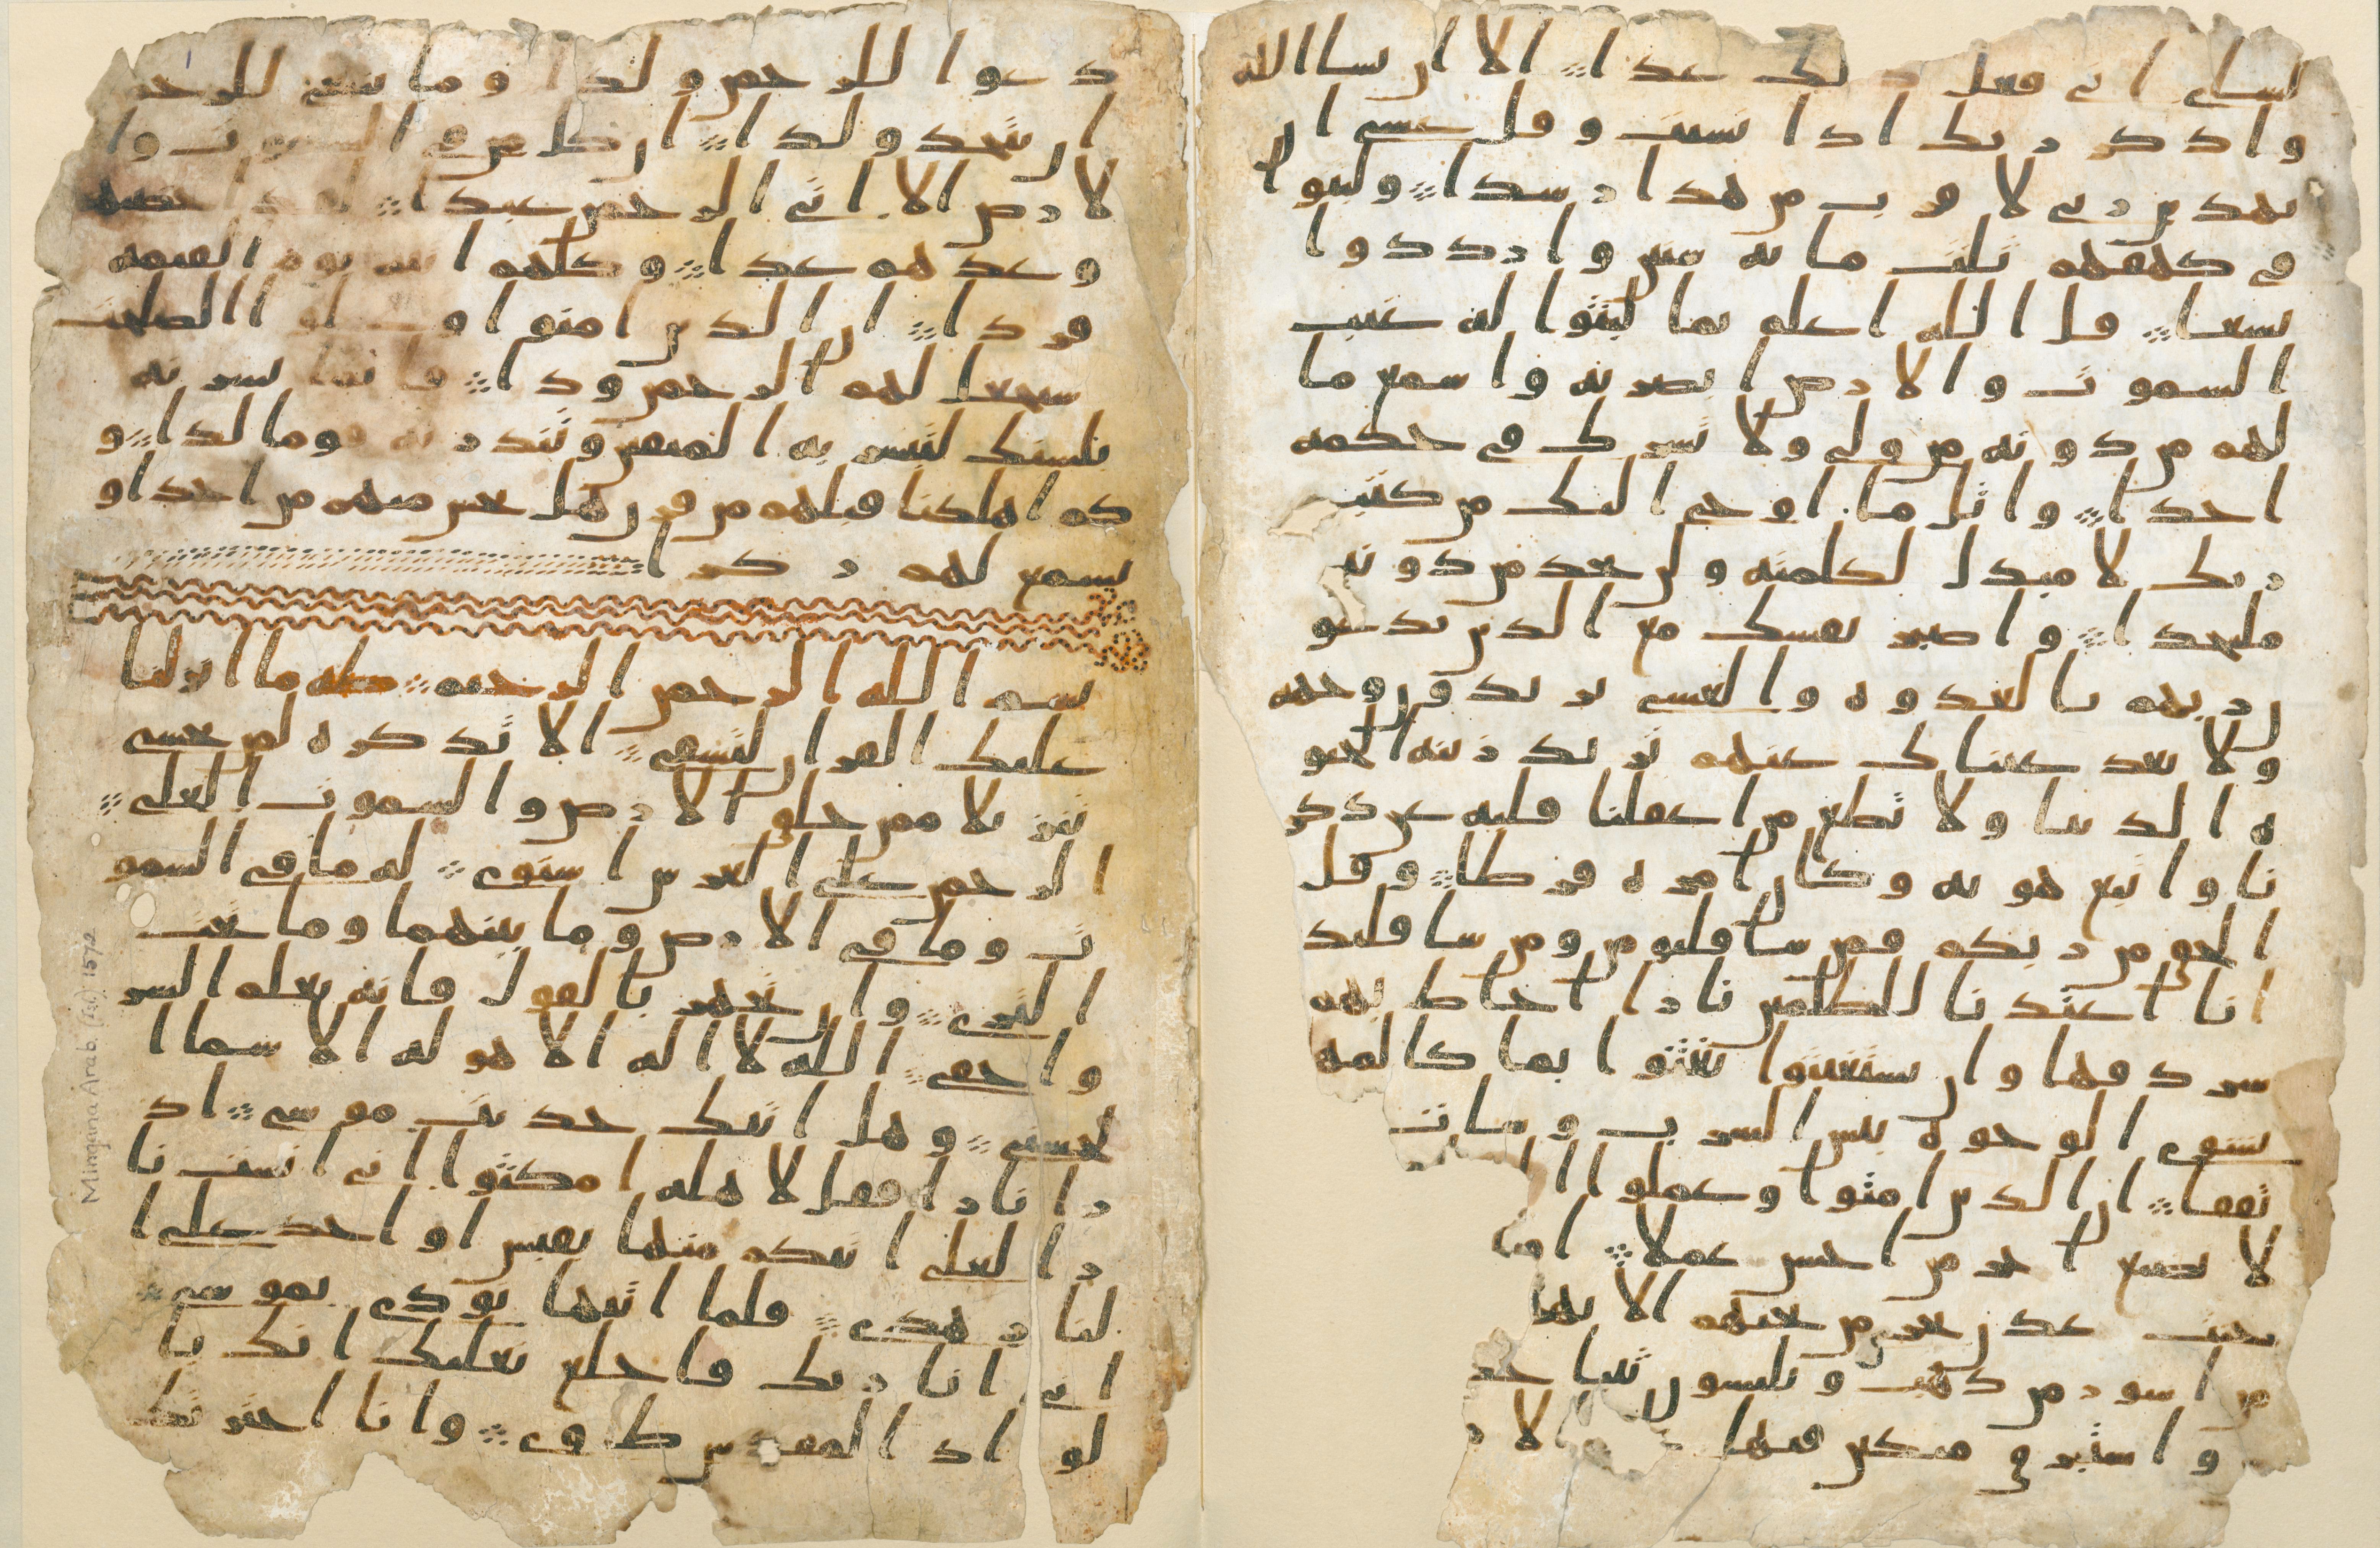 لشاى انى فعل ذلك غدا الا ان يشا الله
واذكر ربك اذا نسيت وقل عسى ان
يهدين ربى لاقرب من هذا رشدا ولبثوا
فى كهفهم ثلث مايه سنين وازددوا
تسعا قل الله اعلم بما لبثوا له غيب
السموت والارض ابصر به واسمع ما
لهم من دونه من ولى ولا تشرك فى حكمه
احدا واتل ما اوحى اليك من كتب
ربك لا مبدل لكلمته ولن تجد من دونه
ملتحدا واصبر نفسك مع الذين يدعو
ن ربهم بالغدوه والعشى يريدون وجهه
ولا تعد عيناك عنهم تريد زينه الحيو
ه الدنيا ولا تطع من اغفلنا قلبه عن ذكر
نا واتبع هويه وكان امره فرطا وقل
الحق من ربكم فمن شا فليومن ومن شا فليك
انا اعتدنا للظلمين نارا احاط بهم
سردقها وان يستغيثوا يغثوا بما كالمه
يشوى الوجوه بيس الشرب وسات
تفقا ان الذين امنوا وعملوا ا
لا نضيع اجر من احسن عملا او
جنت عدن تجرى من تحتهم الانها
من اسور من ذهب ويلبسون ثيبا خض
واستبرق متكين فيها الار
دعوا للرحمن ولدا وما ينبغى للرحمن
ان يتخذ ولدا ان كل من فى السموت وا
لارض الا اتى الرحمن عبدا لقد احصيهم
وعدهم عدا وكلهم اتيه يوم القيمه
فردا ان الذين امنوا وعملوا الصلحت
سيجعل لهم الرحمن ودا فانما يسرنه
بلسنك لتبشر به المتقين وتنذر به قوما لدا و
كم اهلكنا قبلهم من قرن هل تحس منهم من احد او
تسمع لهم ركزا
بسم الله الرحمن الرحيم طه ما انزلنا
عليك القران لتشقى الا تذكره لمن يخشى
تنزيلا ممن خلق الارض والسموت العلى
الرحمن على العرش استوى له ما فى السمو
ت وما فى الارض وما بينهما وما تحت
الثرى وان تجهر بالقول فانه يعلم السر
واخفى الله لا اله الا هو له الاسما ا
لحسنى وهل اتيك حديث موسى اذ
را نارا فقل لاهله امكثوا انى انست نا
را لعلى اتيكم منها بقبس او اجد على ا
لنار هدى فلما اتيها نودى يموسى
انى انا ربك فاخلع نعليك انك با
لواد المقدس طوى وانا اخترتك
Mingana Arab. (Isl.) 1572